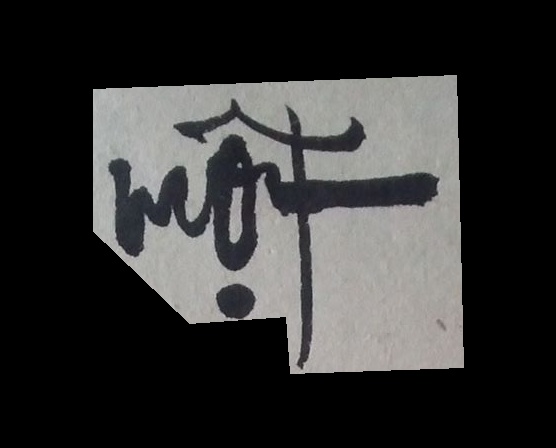 một